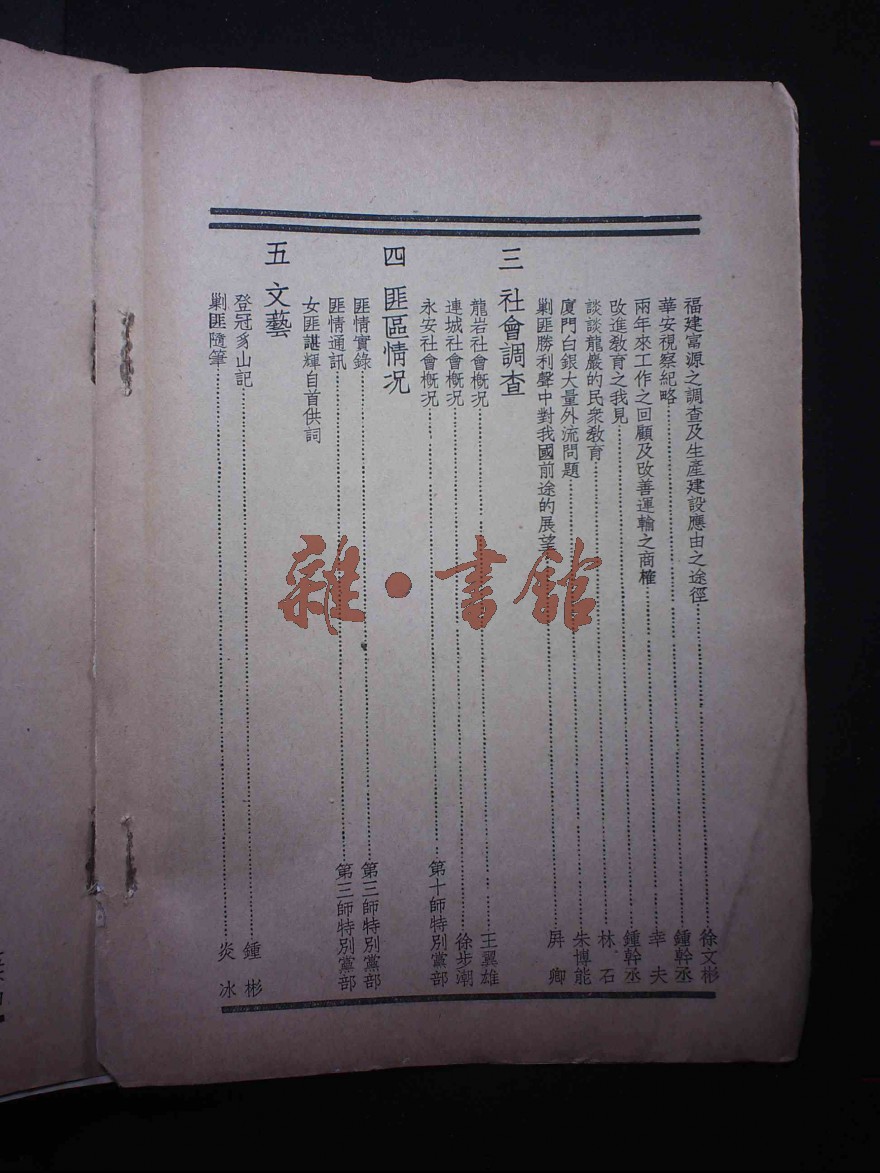 福建富源之調查及生產建設應由之途徑……徐文彬
華安視察紀略……鍾幹丞
兩年來工作之回顧及改善運輸之商榷……幸夫
改進教育之我見……鍾幹丞
談談龍巖的民衆教育……林石
廈門白銀大量外流問題……朱博能
剿匪勝利聲中對我國前途的展望……屏卿
三 社會調查
龍岩社會槪況……王翼雄
連城社會槪況……徐步潮
永安社會槪況……第十師特別黨部
四 匪區情况
匪情實錄……第三師特別黨部
匪情通訊……第三師特別黨部
女匪諶輝自首供詞
五 文藝
登冠豸山記……鍾彬
剿匪隨筆……炎冰
雜·書館